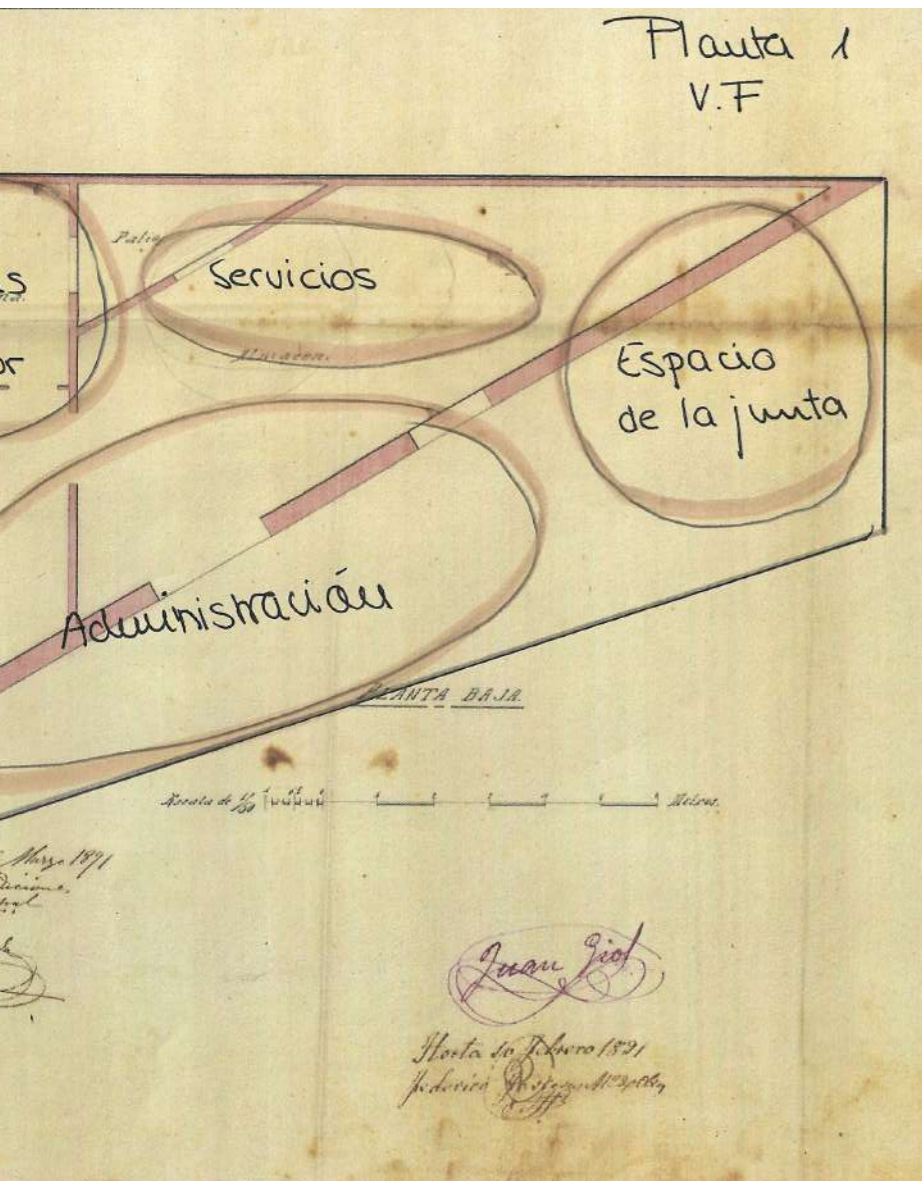 Planta 1
V.F
Patio
Servicios
s
Almacen.
or
Espacio
de la junta
Administración
PLANTA BAJA.
Escala de 1/50
Metros.
Marzo 1891
Juan Giol
Horta 10 Febrero 1891
Federico